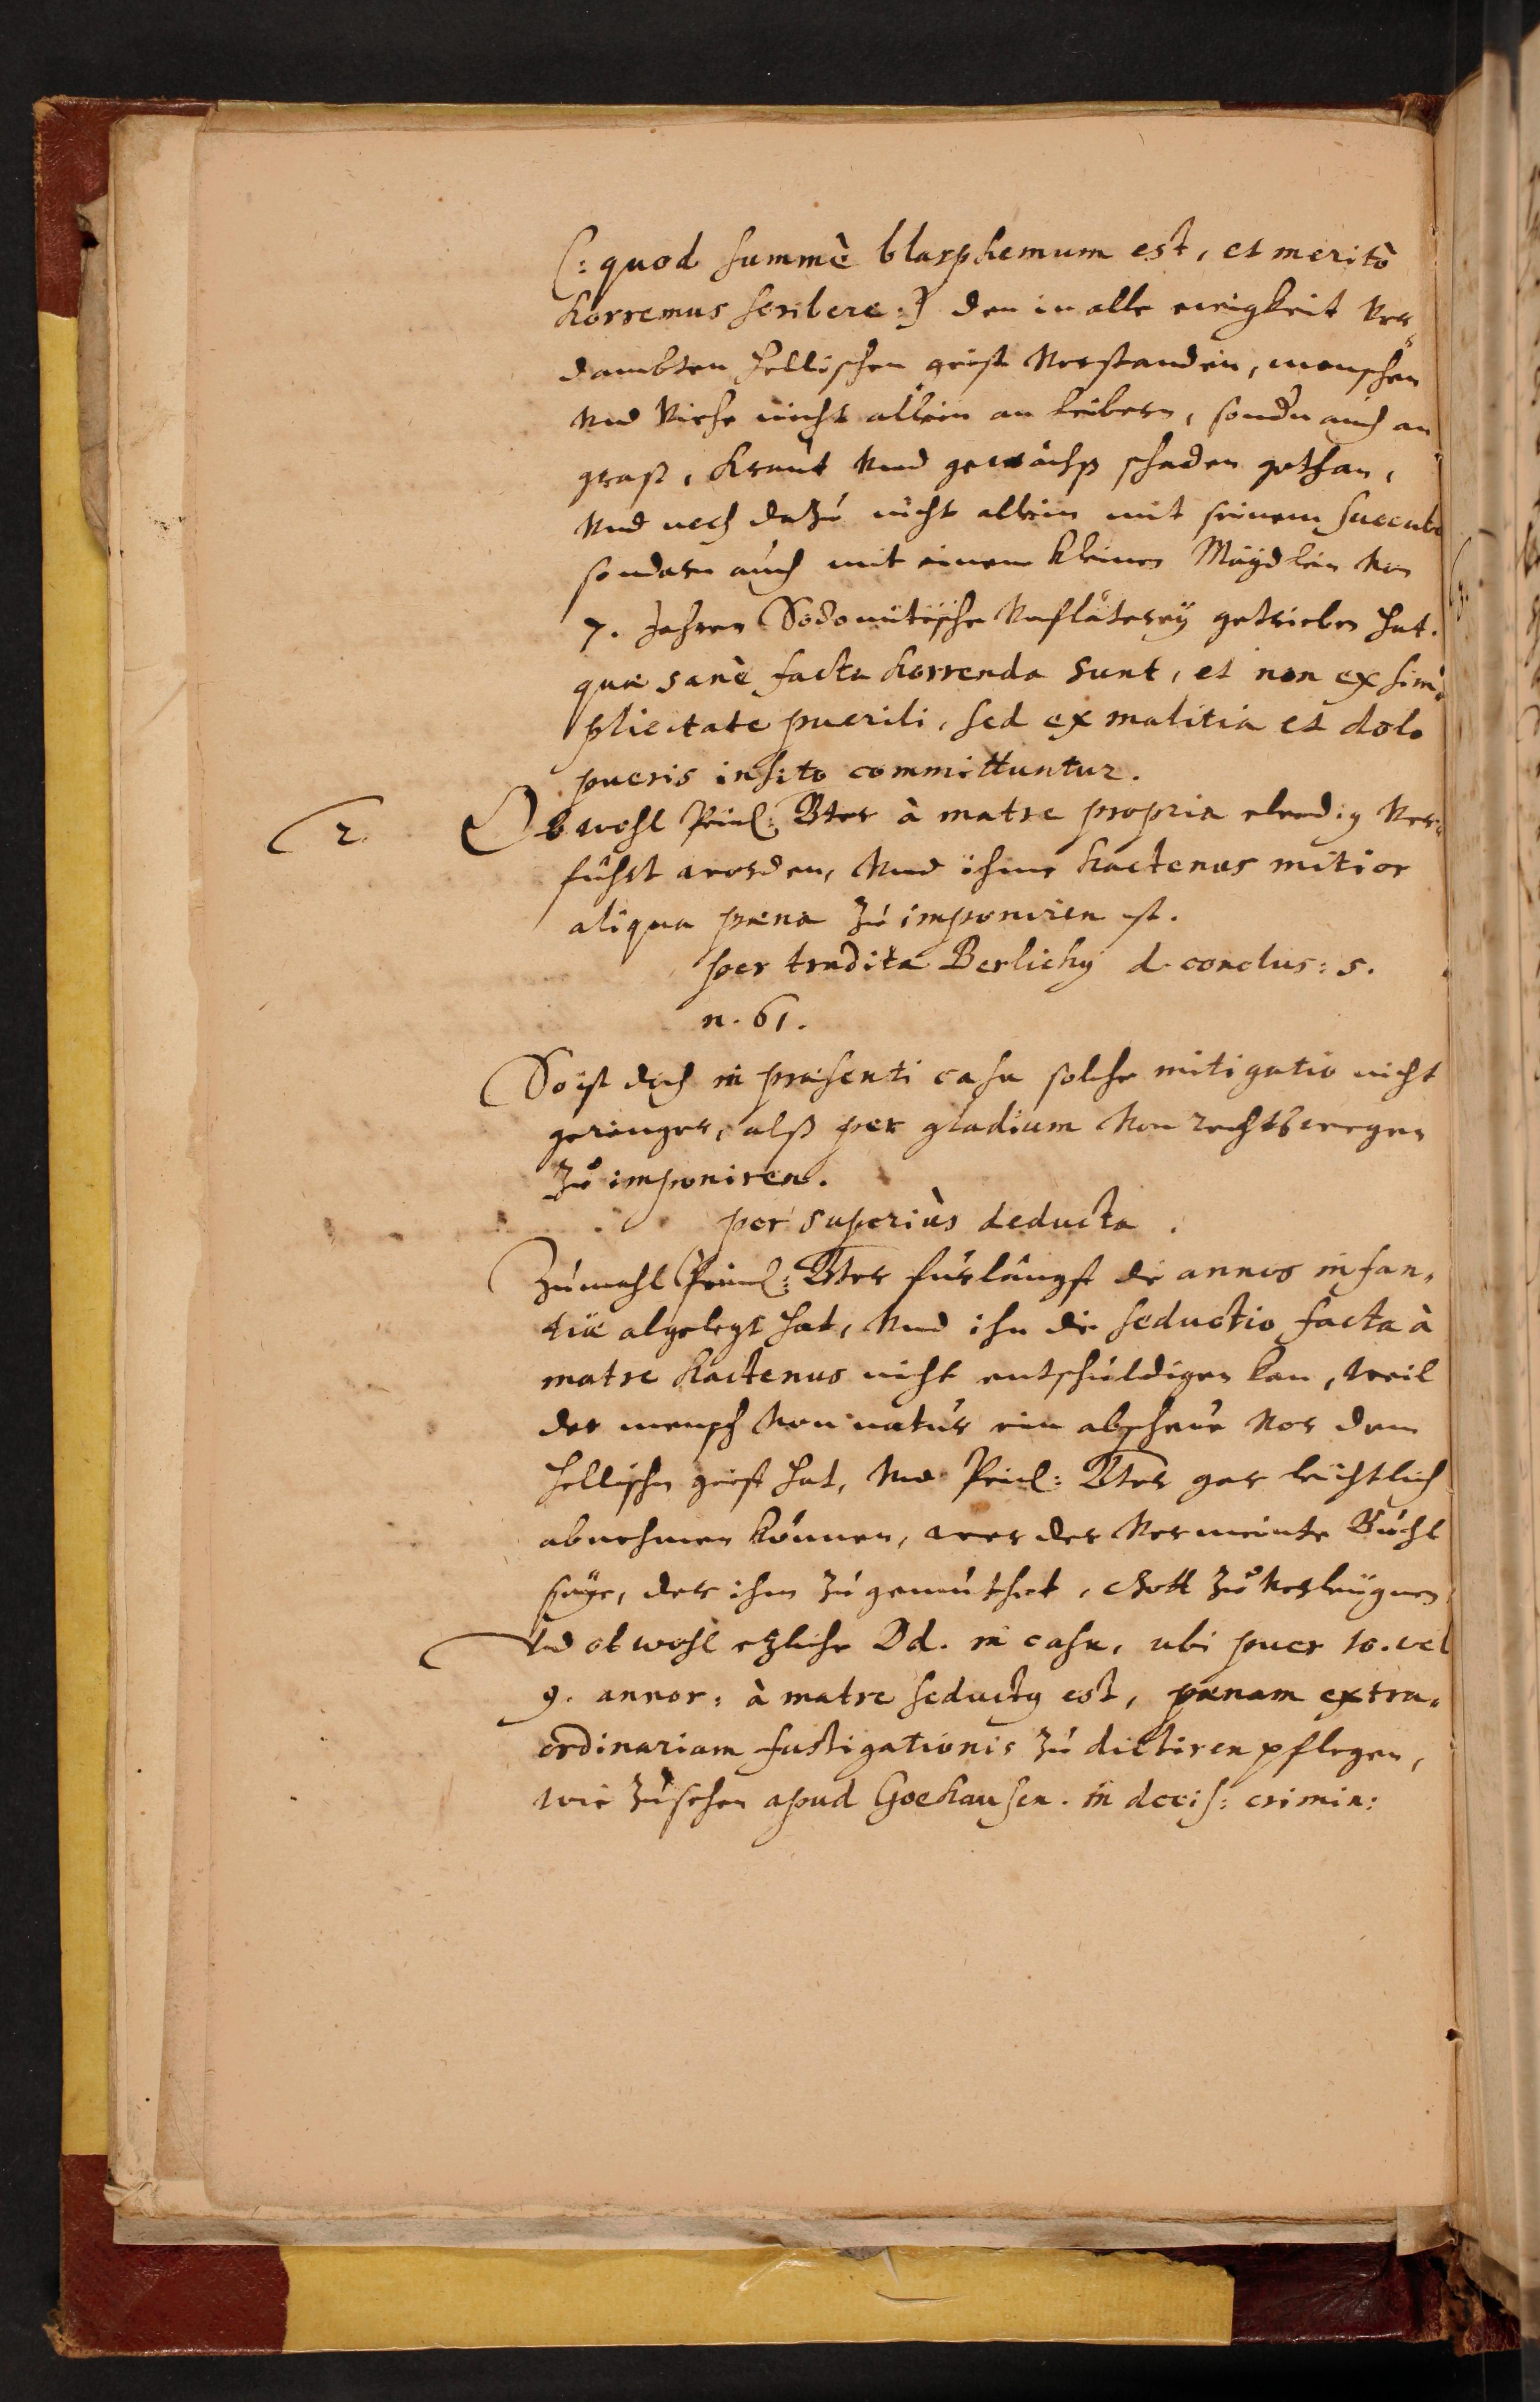 (: quod summè blasphemum est, et meritò
horremus scribere :) den in alle ewigkeit ver=
dambten hellischen geist verstanden, menschen
vnd viehe nicht allein an leibern, sondern auch an
graß, Kraut vnd gewächß schaden gethan,
vnd noch dazu nicht allein mit seinem succubo
sondern auch mit einem kleinen Mägdlein von
7. Jahren Sodomitische vnfläterey getrieben hat.
quæ sanè facta horrenda sunt, et non ex sim=
plicitate puerili, sed ex malitia et dolo
pueris insito committuntur.
2. Obwohl Peinl: Bter à matre propria elendig ver=
führt worden, vnd ihme hactenus mitior
aliqua pœna zu imponiren ist.
per tradita Berlichij d. conclus: 5.
n. 61.
So ist doch in præsenti casu solche mitigatio nicht
geringer, alß per gladium von rechtswegen
zu imponiren.
per superiùs deducta.
Zumahl Peinl: Bter fürlängst die annos infan=
tiæ abgelegt hat, vnd ihn die seductio facta à
matre hactenus nicht entschuldigen kan, weil
der mensch von natur ein abscheue vor dem
hellischen geist hat, vnd Peinl: Bter gar leichtlich
abnehmen können, wer der vermeinte Buhl
seye, der ihm zugemuthet, Gott zu verleugnen
Vnd obwohl etzliche Dd. in casu, ubi puer 10. vel
9. annor: à matre seductus est, pœnam extra=
ordinariam fustigationis zu dictiren pflegen,
wie zusehen apud Goehausen. in decis: crimin: